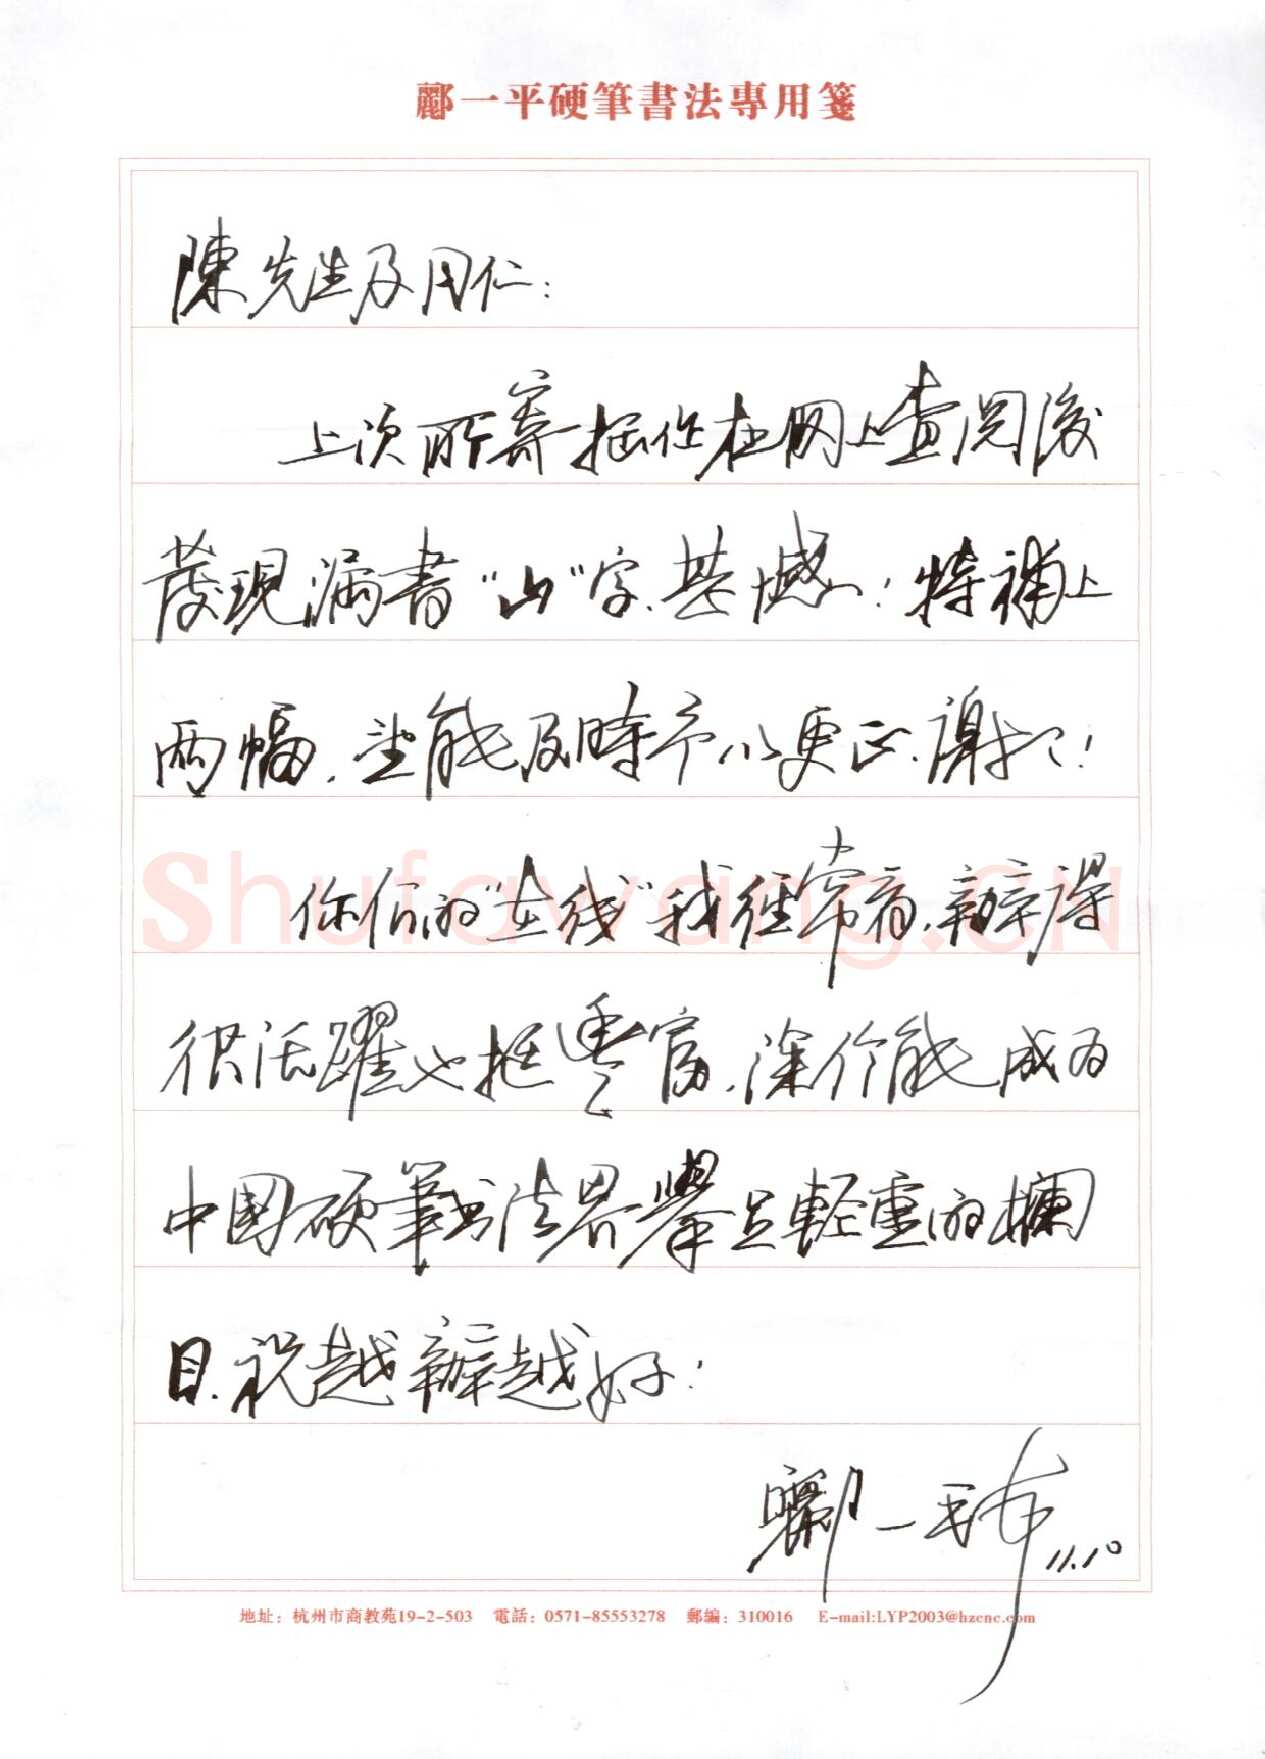 酈一平硬筆書法專用箋
陳先生及同仁：
上次所寄拙作在网上查閱後
發現漏書“山”字、甚憾！特補上
两幅，望能及時予以更正、謝謝！
你们的“在线”我經常看，辦得
很活躍也挺豐富，深信能成为
中國硬筆书法界舉足輕重的欄
目.祝越辦越好！
酈一平
11.10
shufawang.CN
地址：杭州市商教苑19-2-503 電話：0571-85553278 郵編：310016 E-mail:LYP2003@hzcnc.com